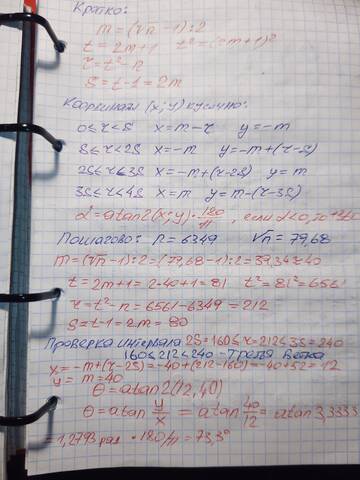 Кратко:
m = (√n - 1):2
t = 2m+1 t² = (2m+1)²
r = t² - n
S = t - 1 = 2m
Координаты (x; y) кусочно:
0 ≤ r < S x = m - r y = -m
S ≤ r < 2S x = -m y = -m + (r - S)
2S ≤ r ≤ 3S x = -m + (r - 2S) y = m
3S ≤ r < 4S x = m y = m - (r - 3S)
α = atan2(x; y) · 180/π, если α < 0, то +360
Пошагово: n = 6349 √n = 79,68
m = (√n - 1):2 = (79,68 - 1):2 = 39,34 ≈ 40
t = 2m+1 = 2·40+1 = 81 t² = 81² = 6561
r = t² - n = 6561 - 6349 = 212
S = t - 1 = 2m = 80
Проверка интервала 2S = 160 ≤ r = 212 ≤ 3S = 240
160 ≤ 212 < 240 - Третья ветка
x = -m + (r - 2S) = -40 + (212 - 160) = -40 + 52 = 12
y = m = 40
θ = atan2(12, 40)
θ = atan y/x = atan 40/12 = atan 3,3333
= 1,2793 рад · 180/π = 73,3°